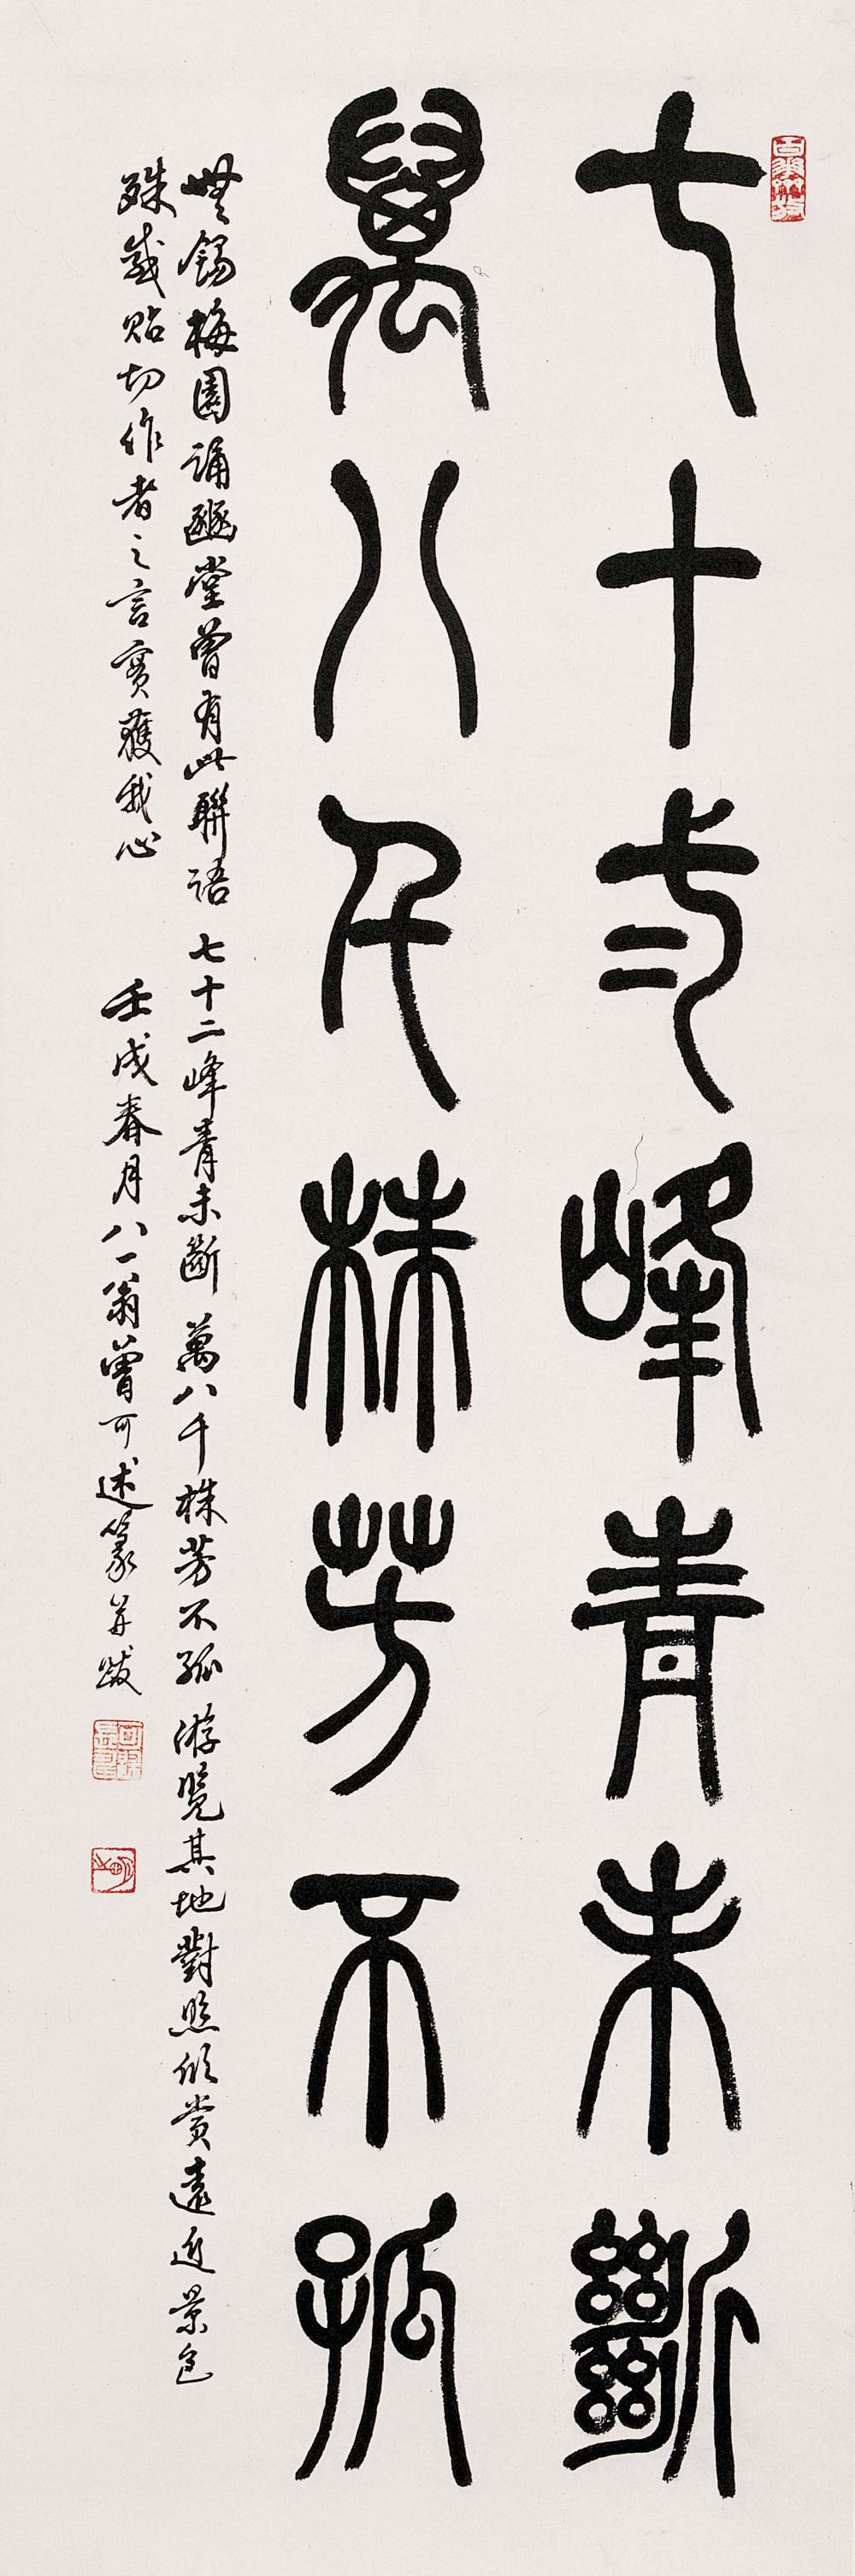 七十弍峰青未斷
萬八千株芳不孤
無錫梅園誦豳堂曾有此聯語七十二峰青未斷萬八千株芳不孤游覽其地對照欣賞遠近景色
殊感貼切作者之言實獲我心壬戌春月八一翁曾可述篆并跋